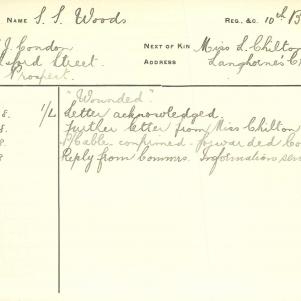 NAME S. S. Woods REG. &C. 10th B
J. Condon NEXT OF KIN Miss L. Chilton
ford Street. ADDRESS Langhorne's C
Prospect.
"Wounded"
8. 1/L Letter acknowledged.
8. Further letter from Miss Chilton
8. P/Cable confirmed - forwarded Co
8 Reply from Commrs. Information sen